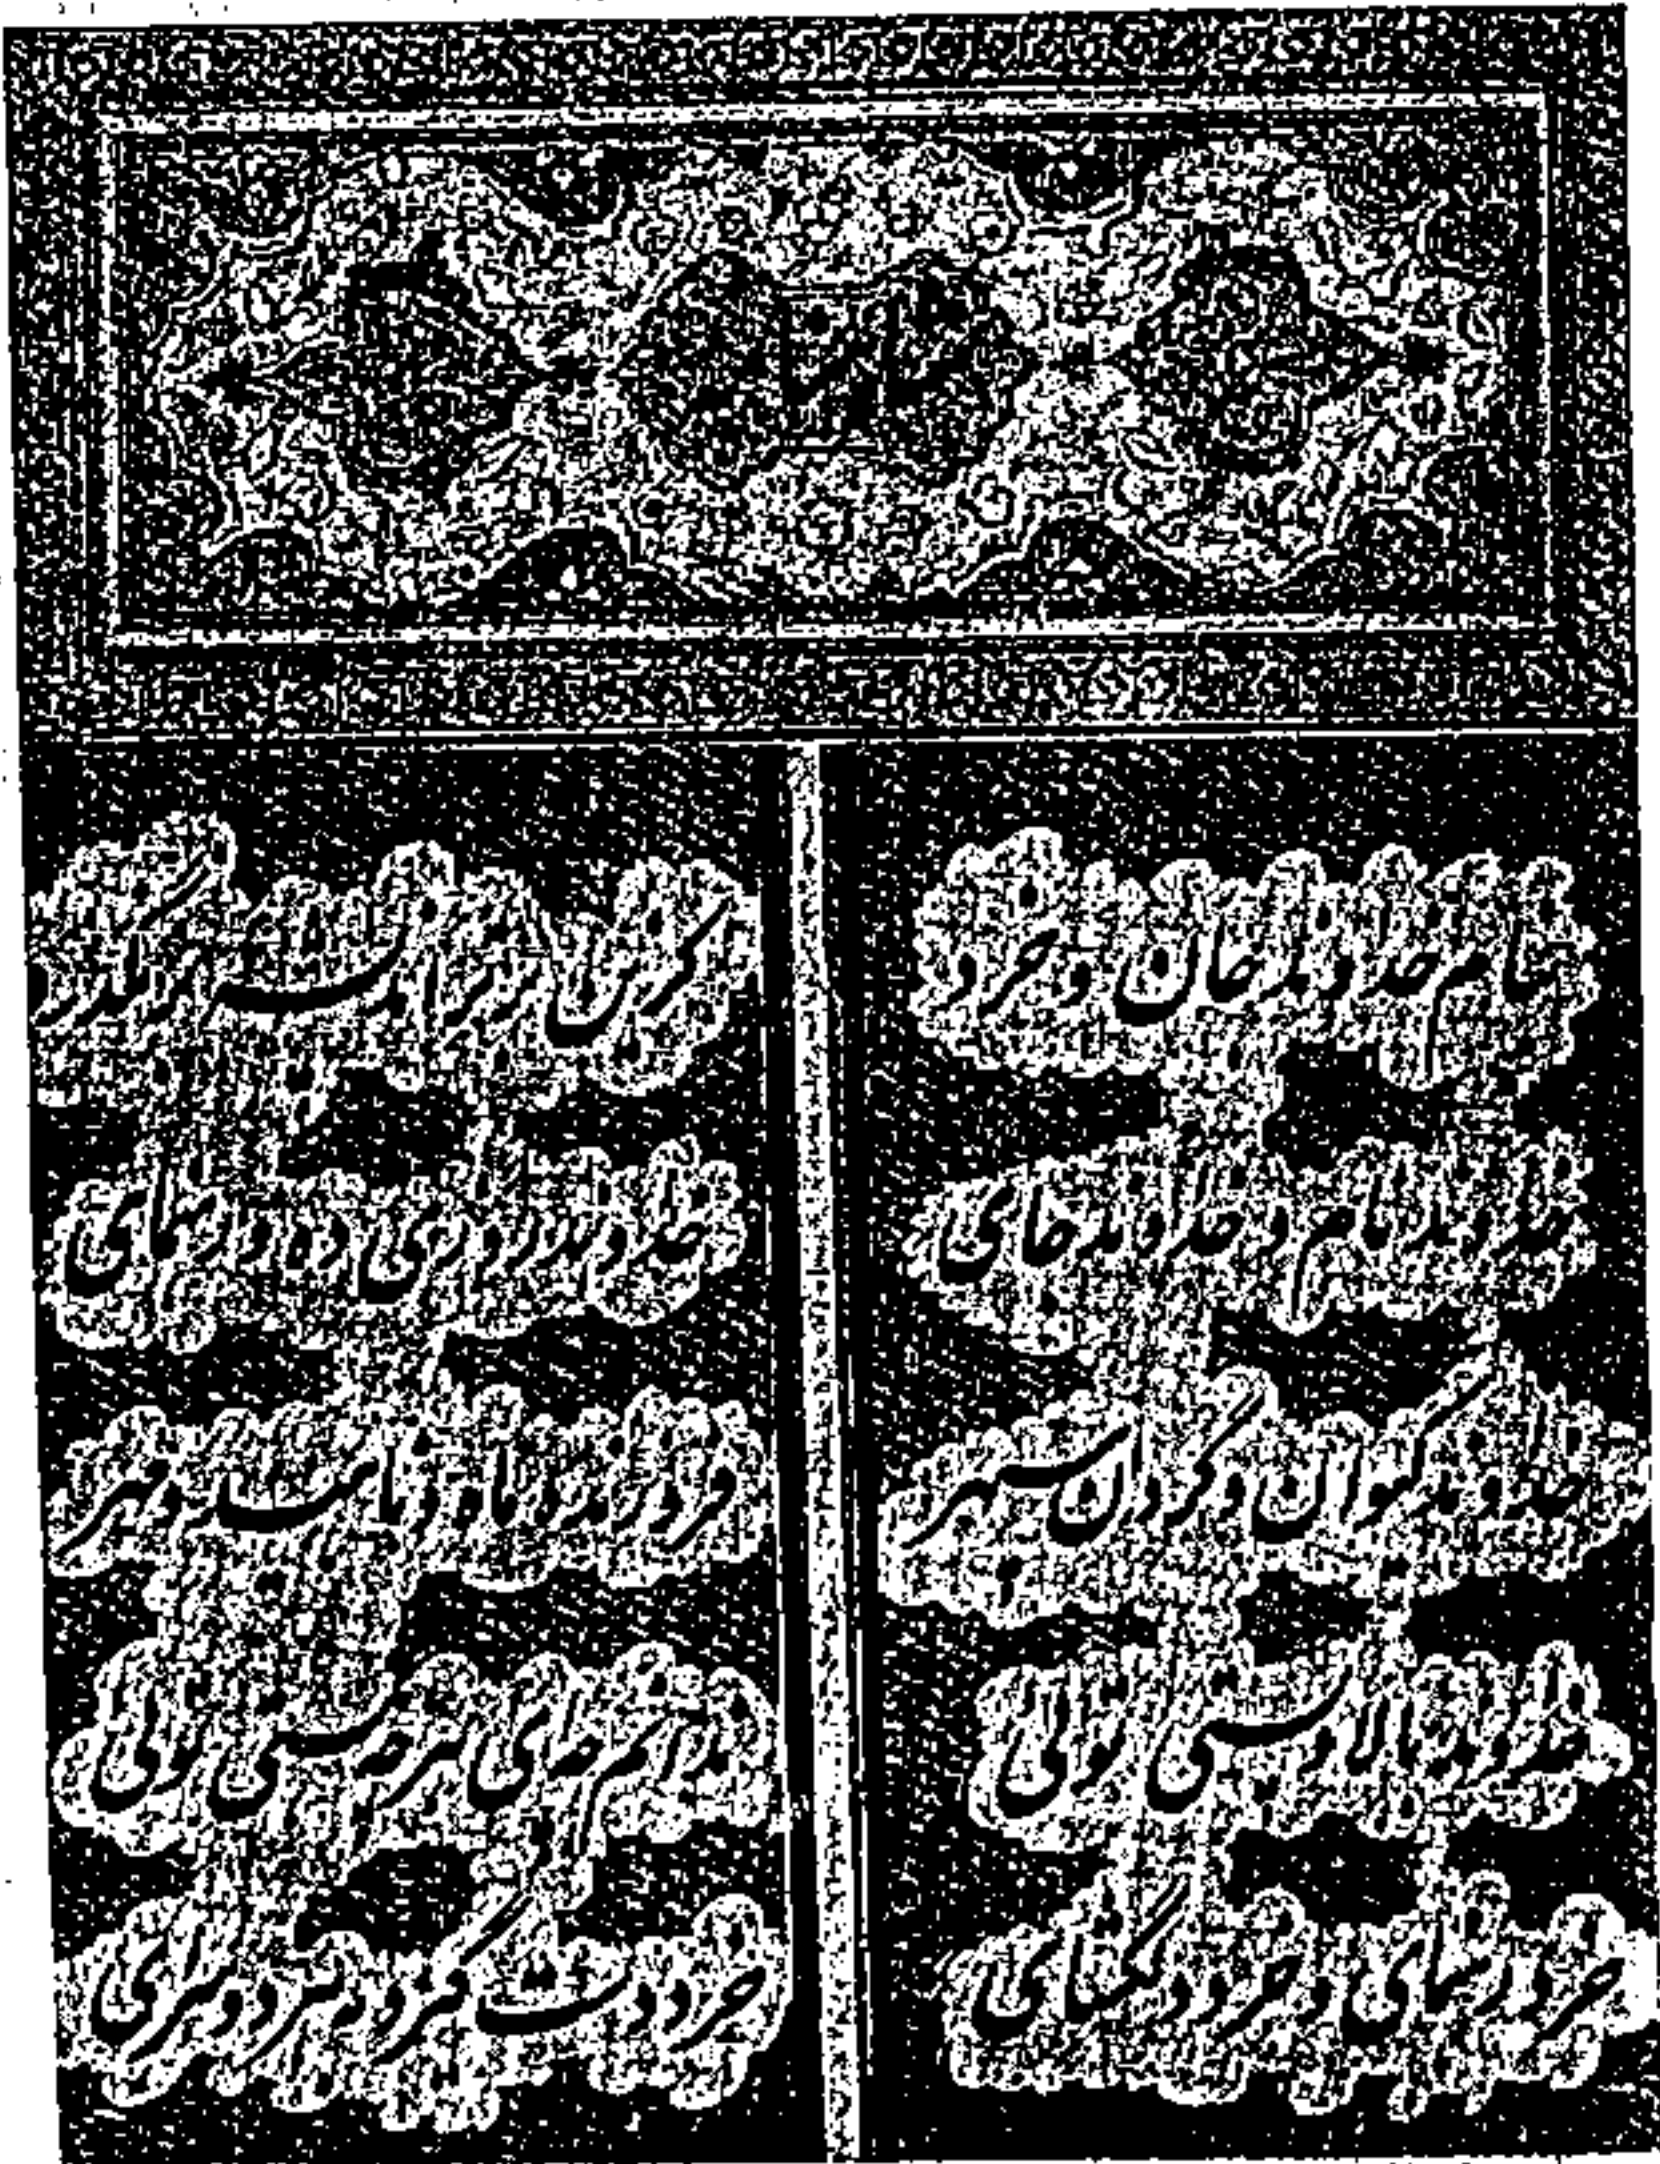 بنام خداوند جان و خرد
کزین برتر اندیشه برنگذرد
خداوند نام و خداوند جای
خداوند روزی ده رهنمای
خداوند کیوان و گردان سپهر
فروزنده ماه و ناهید و مهر
خداوند بالا و پستی توئی
ندانم چئی هر چه هستی توئی
خرد رهنمای و خرد دلگشای
خرد دست گیرد بهر دو سرای